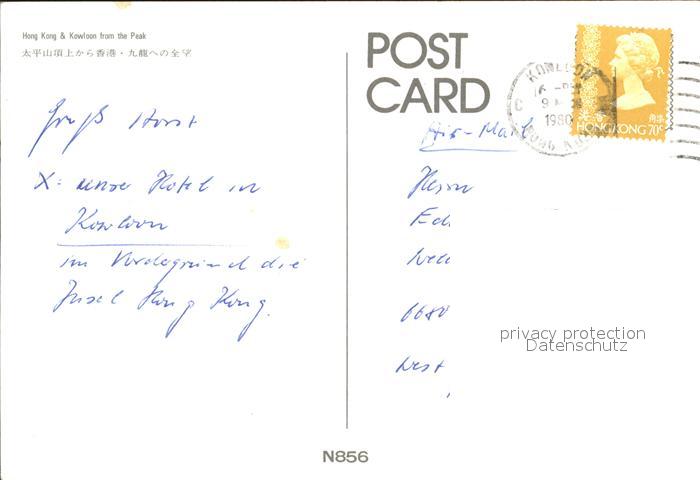 Hong Kong & Kowloon from the Peak
太平山頂上から香港・九龍への全望
POST
CARD
Gruß Horst
X: unser Hotel in
Kowloon
im Vordergrund die
Insel Hong Kong.
Air-Mail
Herrn
6680
West
KOWLOON
1980
HONG KONG
香港
HONG KONG 70c
privacy protection
Datenschutz
N856